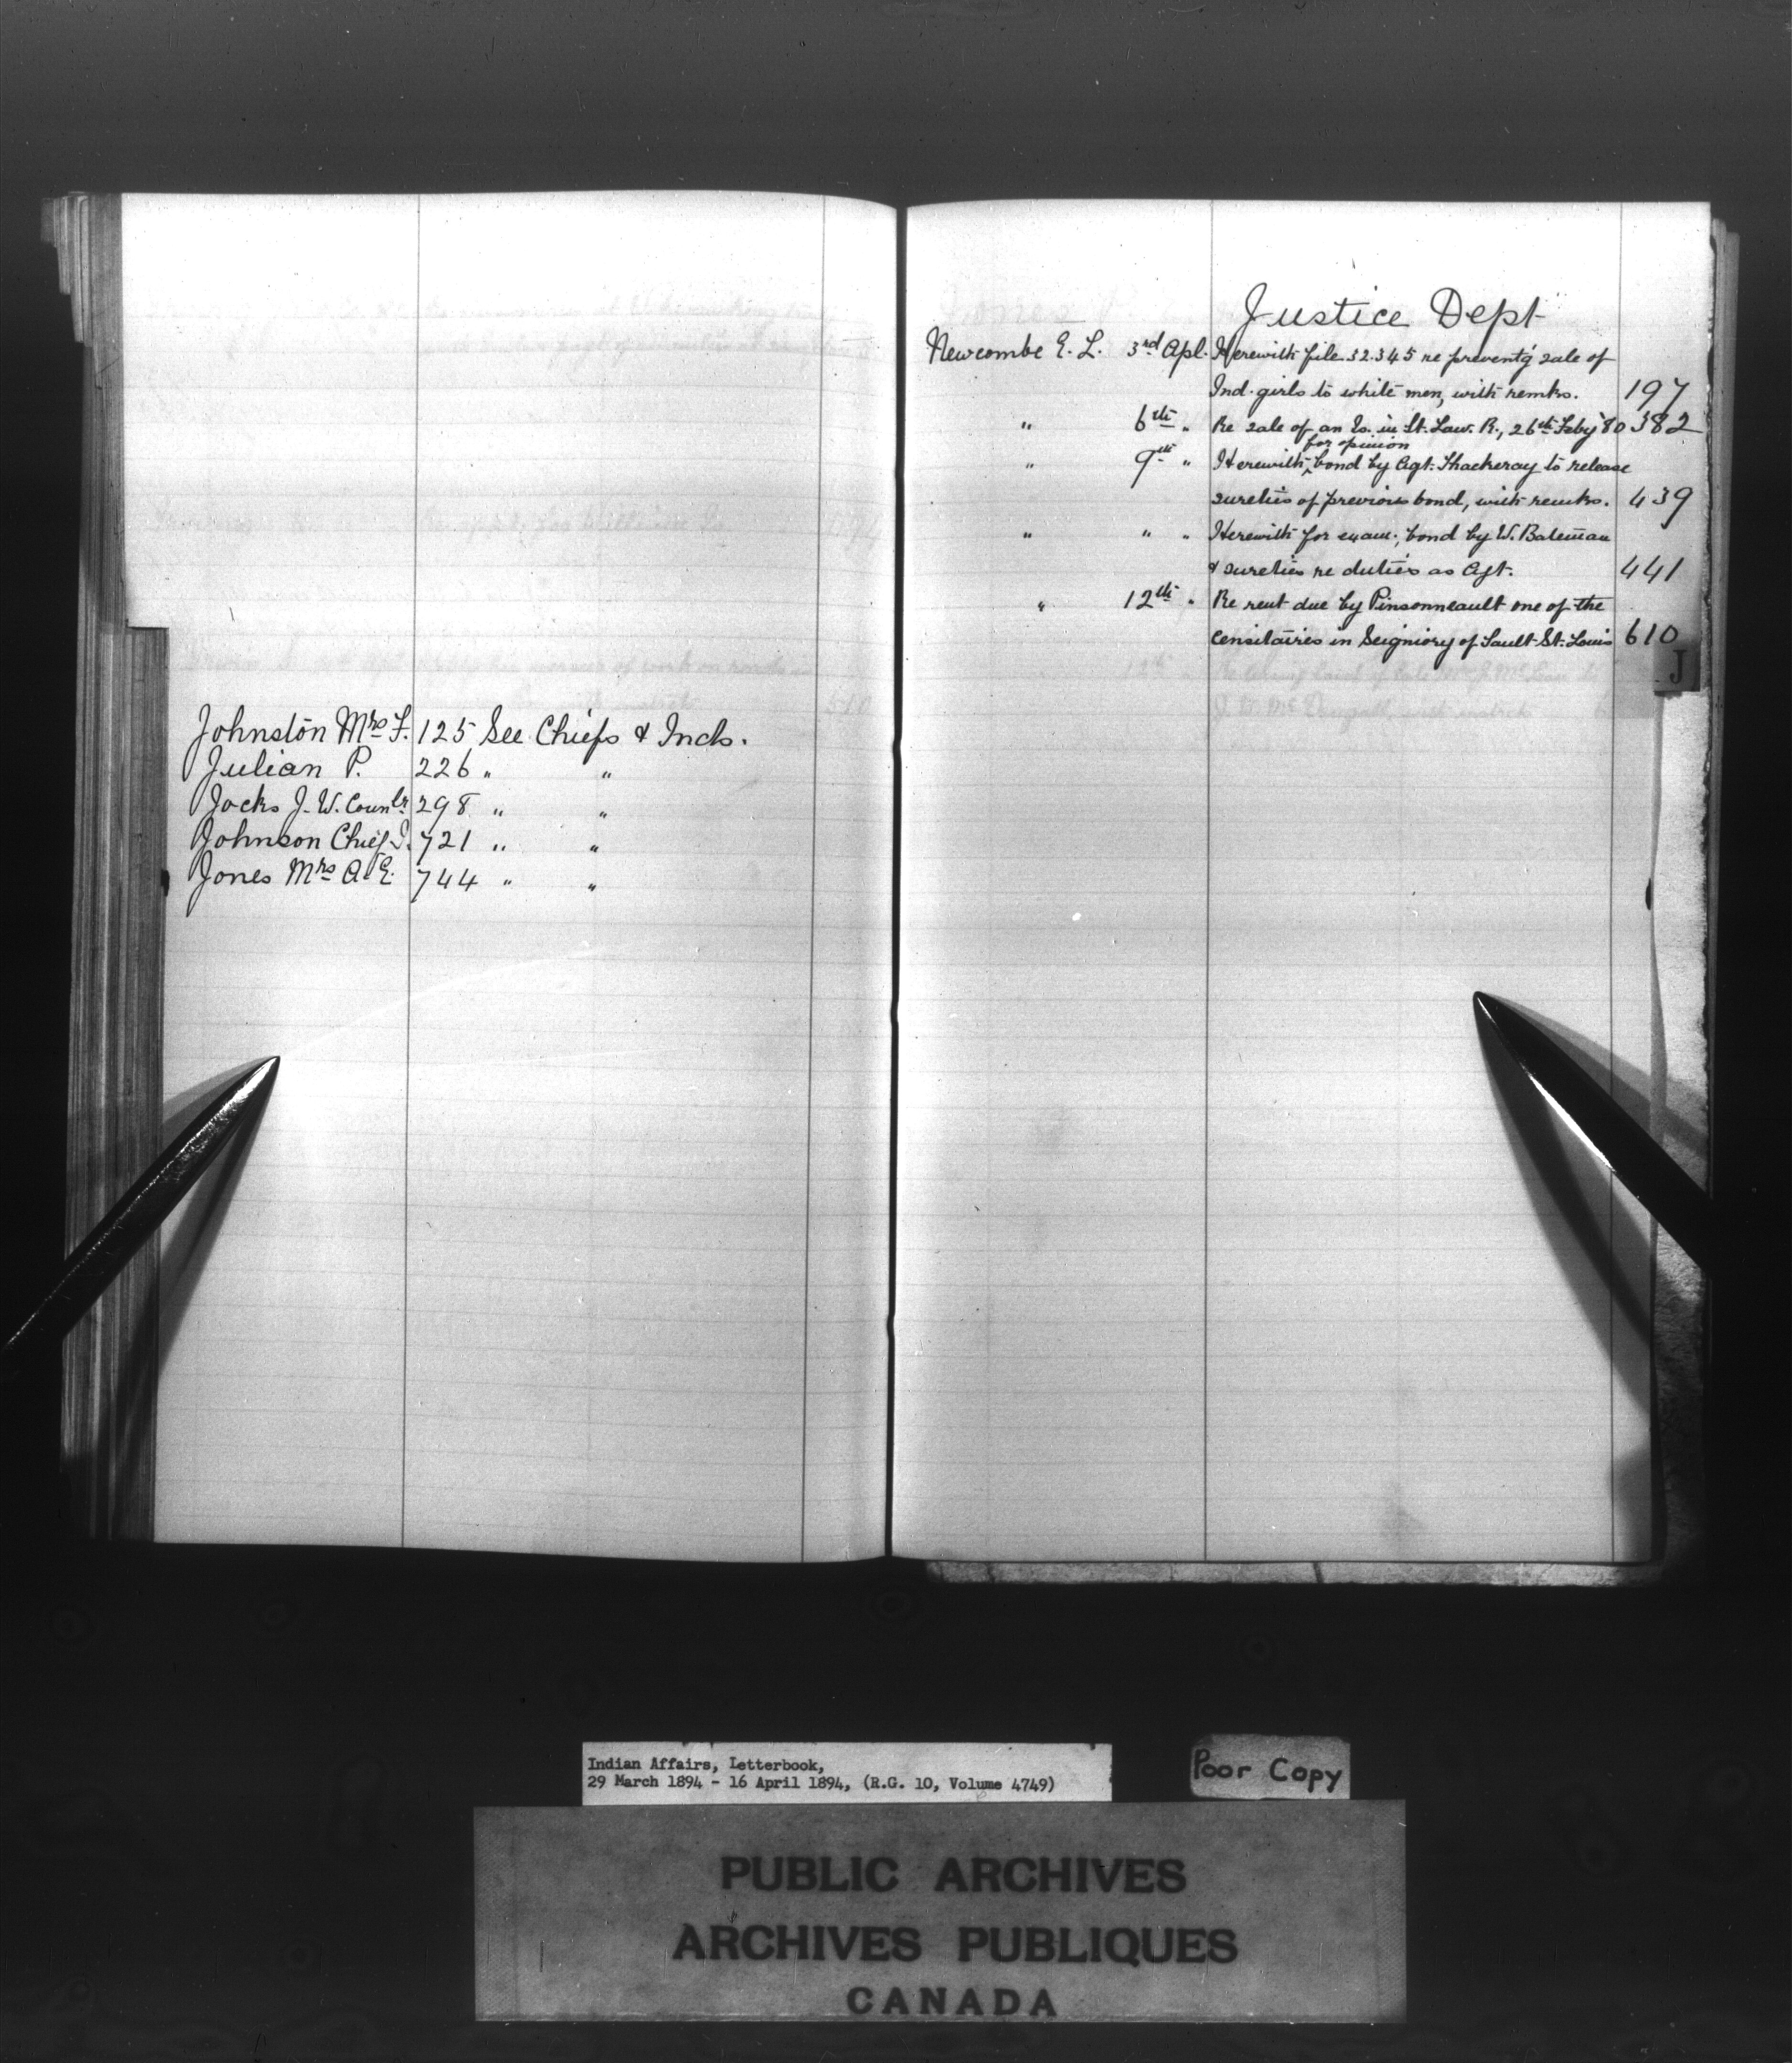 Johnston Mrs F. 125 See Chiefs & Inds.
Julian P. 226 " "
Jocks J. W. Counlr 298 " "
Johnson Chief S. 721 " "
Jones Mrs A. E. 744 " "
Justice Dept
Newcombe E. L. 3rd Apl. Herewith file 32.345 re prevent'g sale of
Ind. girls to white men, with remks. 197
" 6th " Re sale of an Is. in St. Law. R., 26th Feby '80 382
for opinion
" 9th " Herewith ‸ bond by Agt. Thackeray to release
sureties of previous bond, with remks. 439
" " " Herewith for exam., bond by W. Bateman
& sureties re duties as Agt. 441
" 12th " Re rent due by Pinsonneault one of the
censitaires in Seigniory of Sault St. Louis 610
J
Indian Affairs, Letterbook,
29 March 1894 - 16 April 1894, (R.G. 10, Volume 4749)
Poor Copy
PUBLIC ARCHIVES
ARCHIVES PUBLIQUES
CANADA